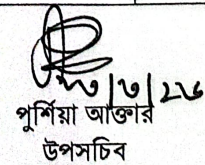 ১৩/৩/২৬
পুর্শিয়া আক্তার
উপসচিব